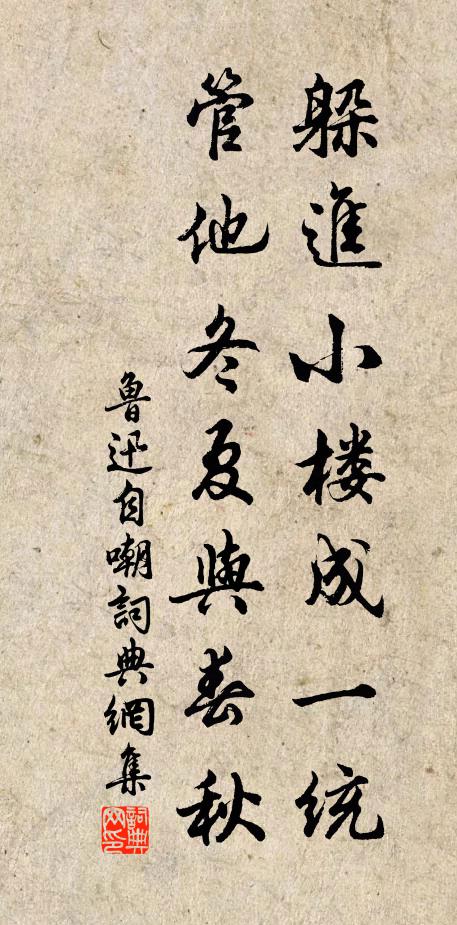 躲進小楼成一統
管他冬夏與春秋
魯迅自嘲詞典網集
詞典網印